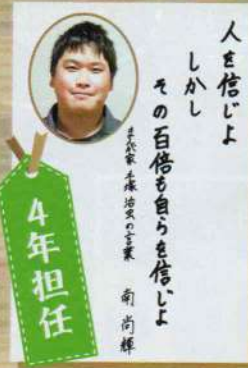 人を信じよ
しかし
その百倍も自らを信じよ
まんが家 手塚治虫の言葉
南 尚輝
4年担任